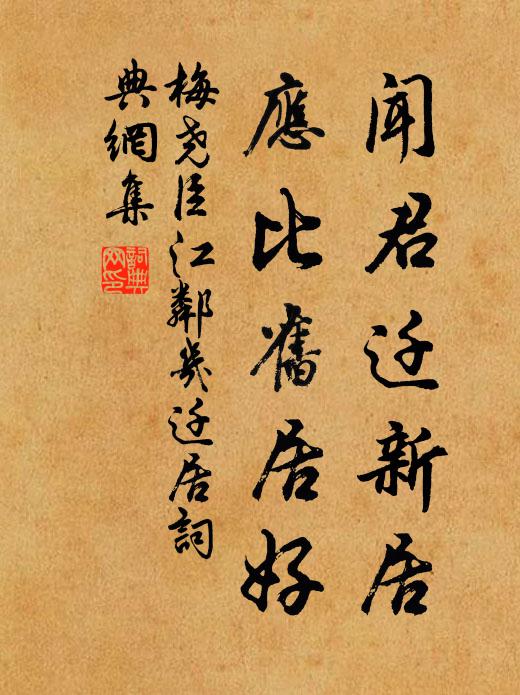 聞君迁新居
應比舊居好
梅尧臣江鄰幾迁居詞
典網集
詞典網印